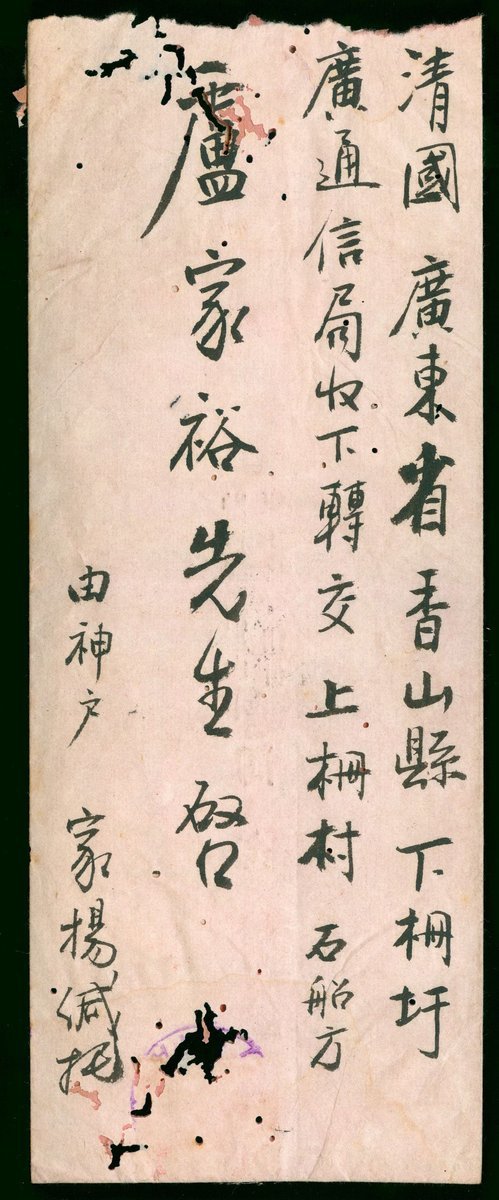 清國 廣東省香山縣 下柵圩
廣通信局收下轉交 上柵村 石船方
盧家裕先生啓
由神户 家楊緘托